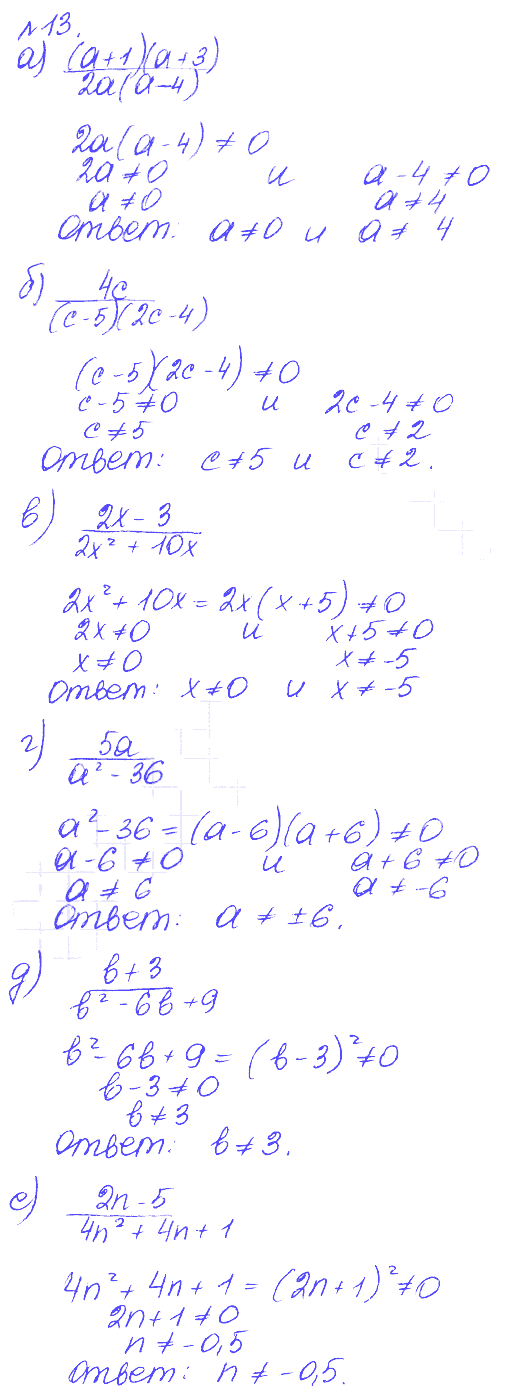 №13.
а) (a+1)(a+3)
2a(a-4)
2a(a-4) ≠ 0
2a ≠ 0 и a-4 ≠ 0
a ≠ 0 a ≠ 4
Ответ: a ≠ 0 и a ≠ 4
б) 4c
(c-5)(2c-4)
(c-5)(2c-4) ≠ 0
c-5 ≠ 0 и 2c-4 ≠ 0
c ≠ 5 c ≠ 2
Ответ: c ≠ 5 и c ≠ 2.
в) 2x-3
2x² + 10x
2x² + 10x = 2x(x+5) ≠ 0
2x ≠ 0 и x+5 ≠ 0
x ≠ 0 x ≠ -5
Ответ: x ≠ 0 и x ≠ -5
г) 5a
a² - 36
a² - 36 = (a-6)(a+6) ≠ 0
a-6 ≠ 0 и a+6 ≠ 0
a ≠ 6 a ≠ -6
Ответ: a ≠ ±6.
д) b+3
b² - 6b + 9
b² - 6b + 9 = (b-3)² ≠ 0
b-3 ≠ 0
b ≠ 3
Ответ: b ≠ 3.
е) 2n-5
4n² + 4n + 1
4n² + 4n + 1 = (2n+1)² ≠ 0
2n+1 ≠ 0
n ≠ -0,5
Ответ: n ≠ -0,5.